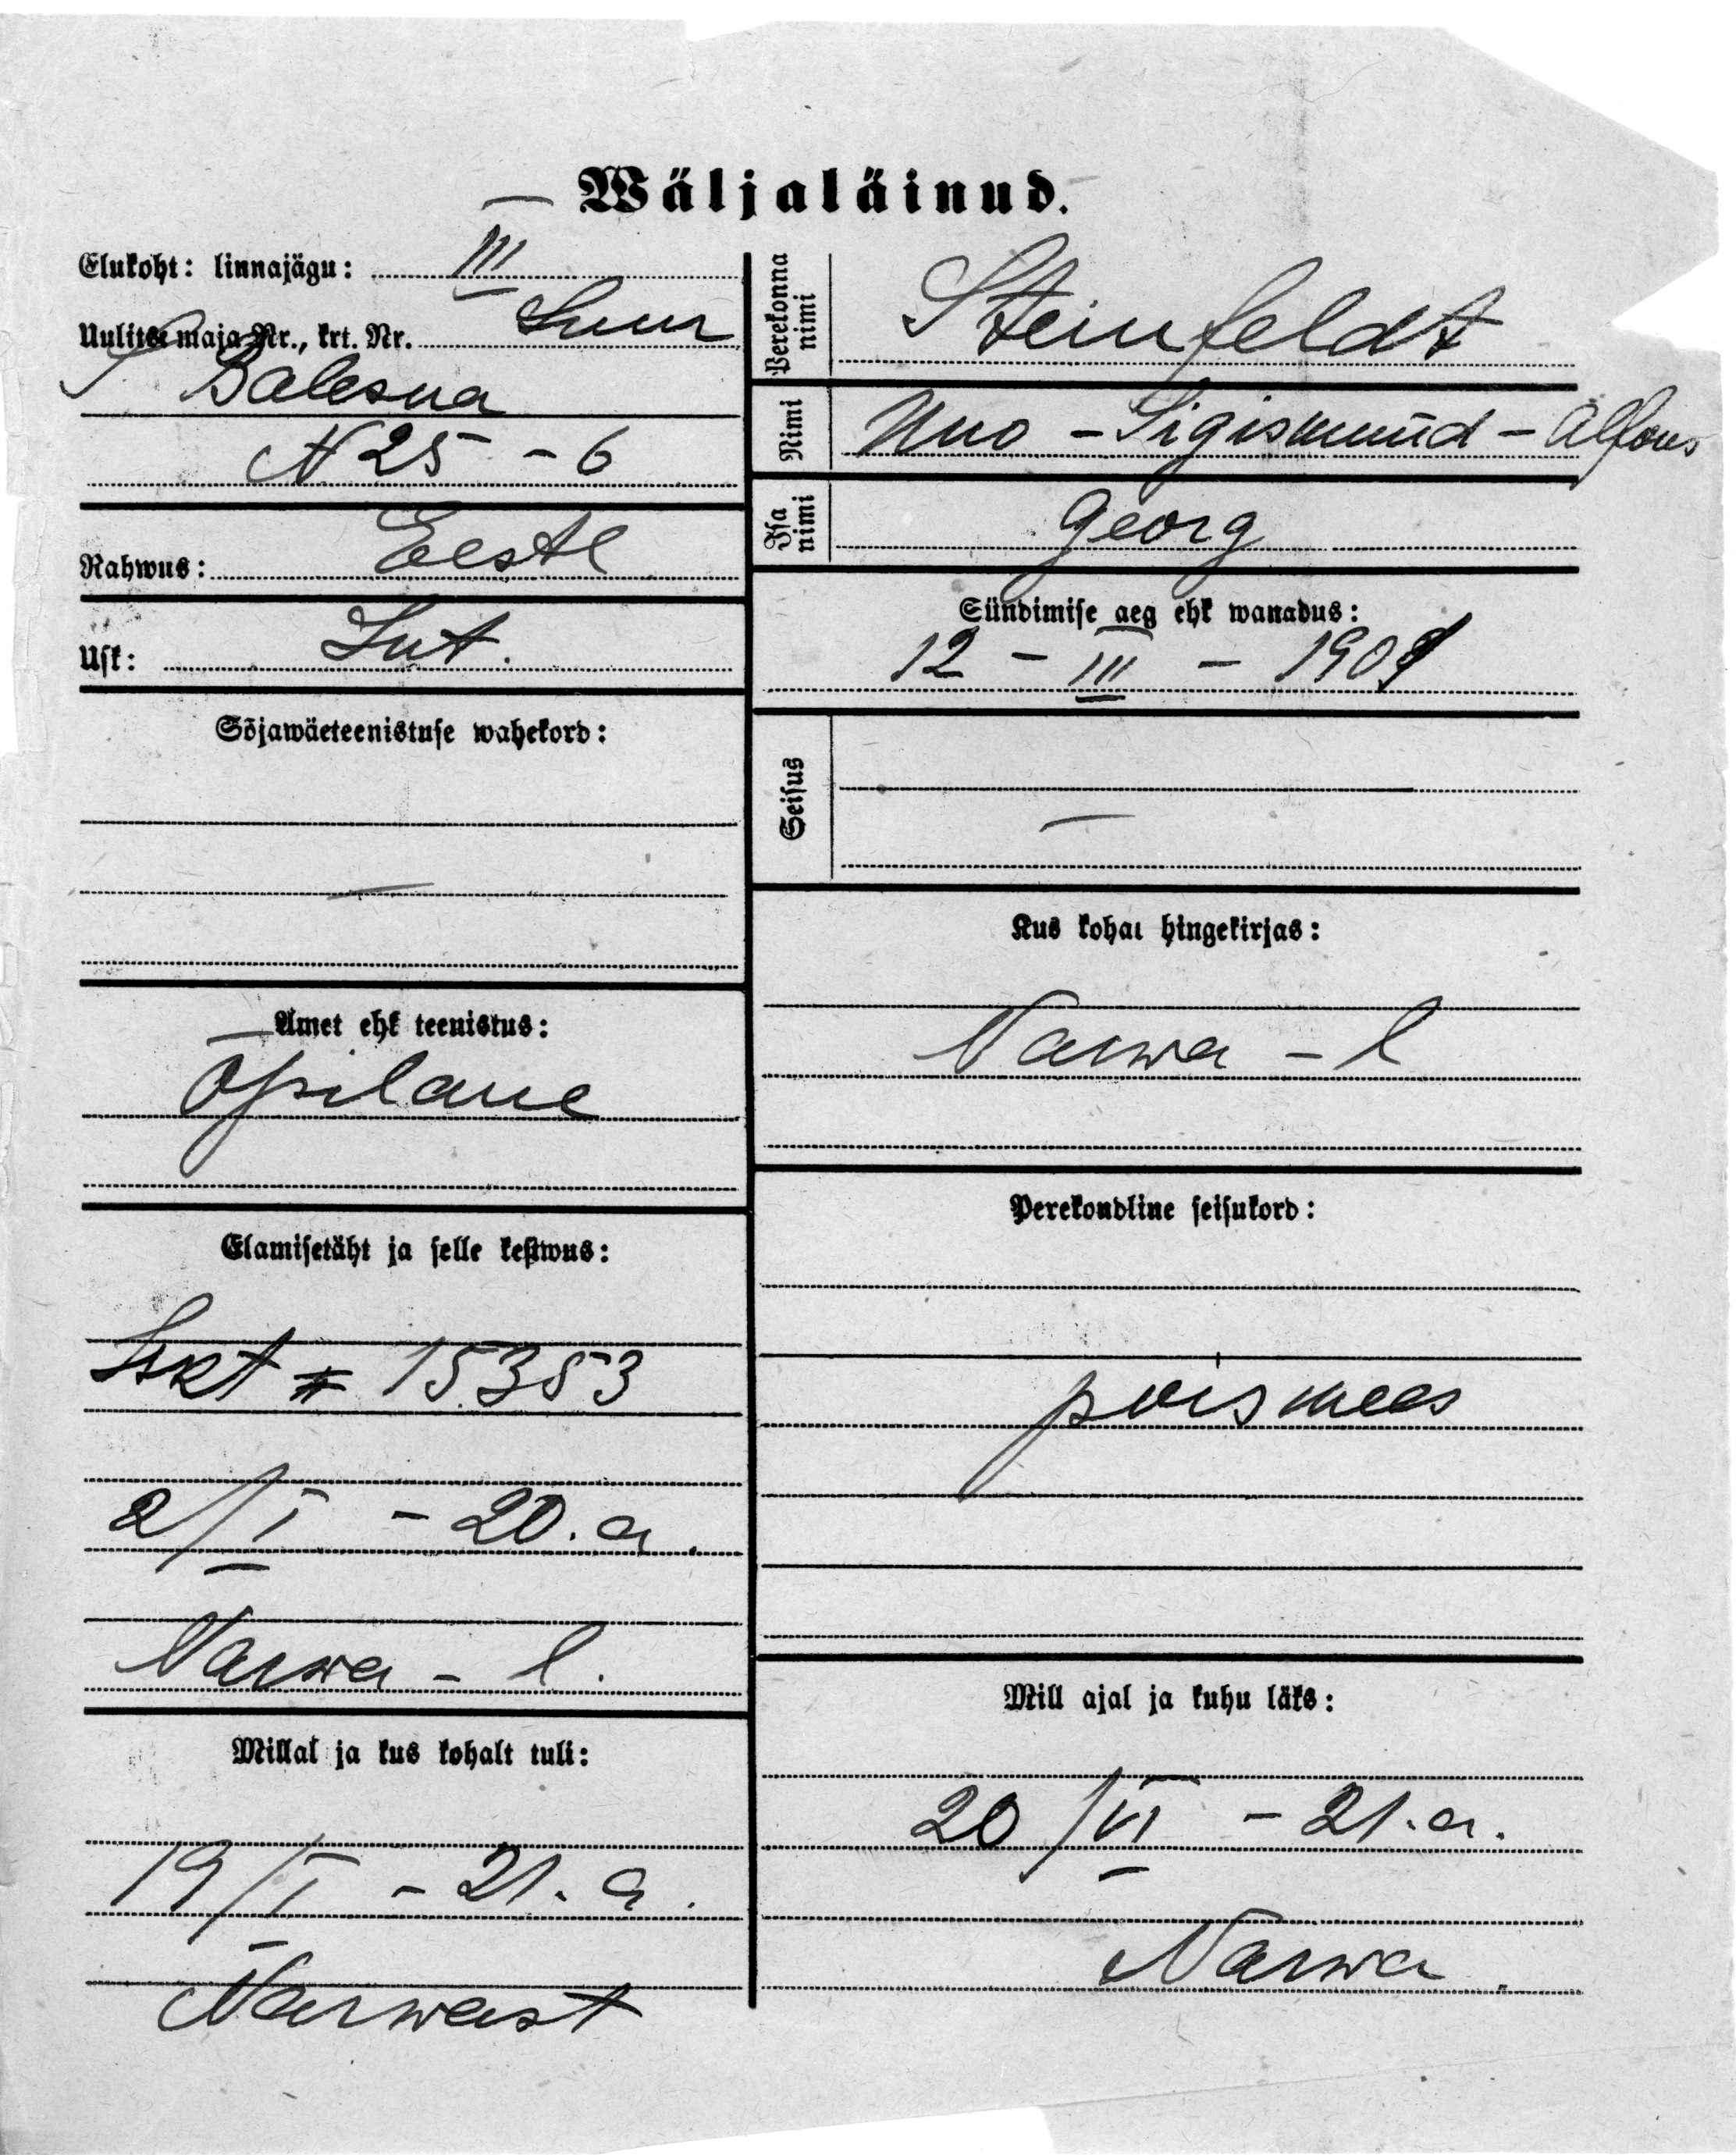 Wäljaläinud.
Elukoht: linnajägu: III
Uulitse maja Nr., krt. Nr. Suur
N 25 - 6
Rahwus: Eesti
Usk: Lut.
Sõjawäeteenistuse wahekord:
—
Amet ehk teenistus:
Õpilane
Elamisetäht ja selle kestwus:
№ 15353
2/I - 20. a.
Narwa - l.
Millal ja kus kohalt tuli:
19/I - 21. a.
Narwast
Perekonna nimi Steinfeldt
Nimi Uno - Sigismund - Alfons
Isa nimi Georg
Sündimise aeg ehk wanadus:
12 - III - 1909
Seisus —
Kus kohal hingekirjas:
Narwa - l
Perekondline seisukord:
poismees
Mill ajal ja kuhu läks:
20/VI - 21. a.
Narwa.